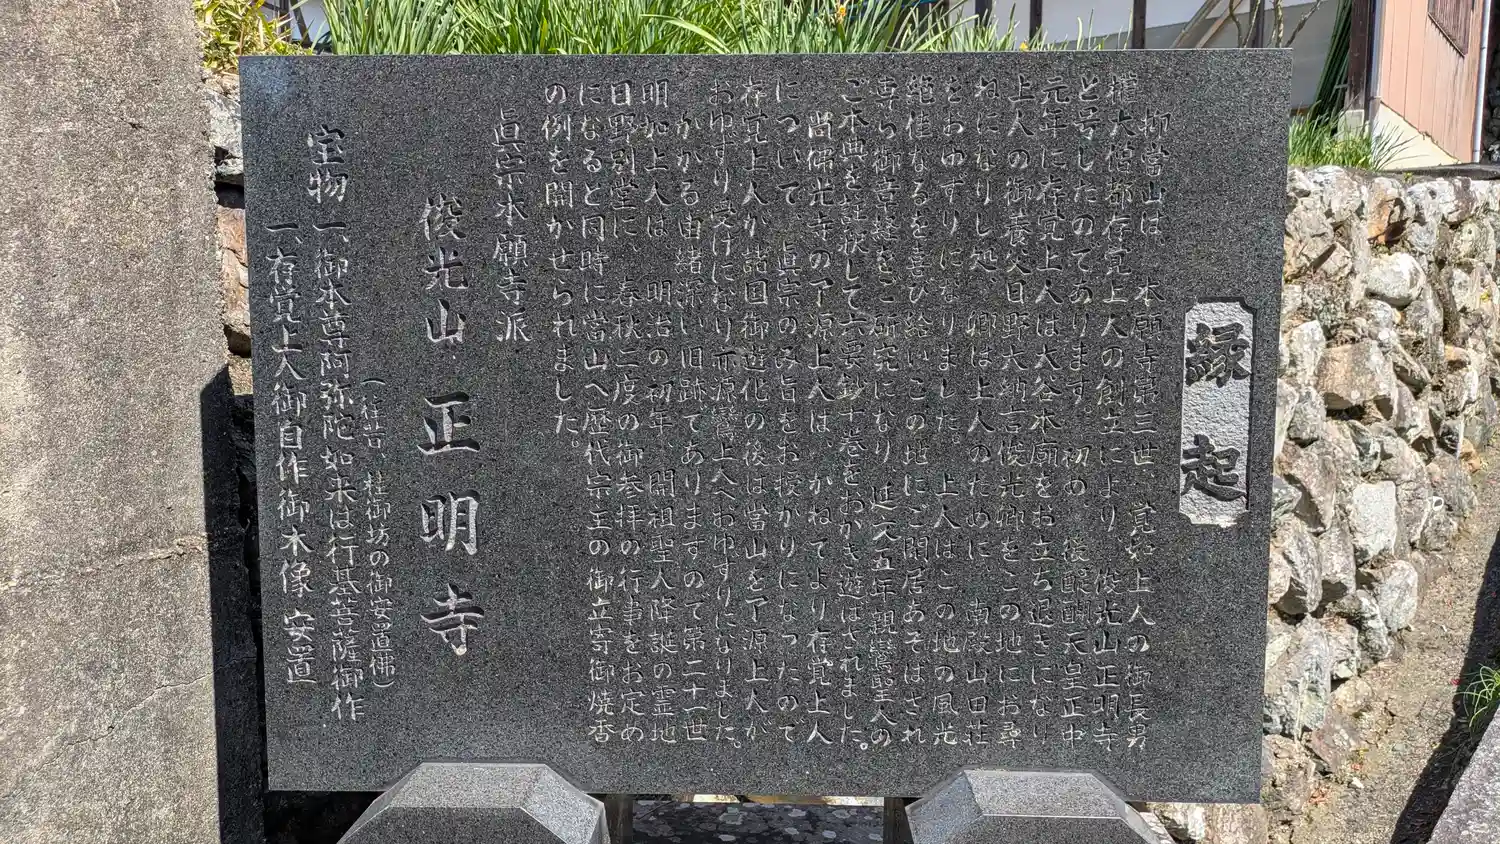 縁起
抑當山は、本願寺第三世、覚如上人の御長男
権大僧都存覚上人の創立により、俊光山正明寺
と号したのであります。初め、後醍醐天皇正中
元年に存覚上人は大谷本廟をお立ち退きになり
上人の御養父日野大納言俊光卿をこの地にお尋
ねになりし処、卿は上人のために、南殿山田荘
をおゆずりになりました。上人はこの地の風光
絶佳なるを喜び給いこの地にご閑居あそばされ
専ら御章経をご研究になり、延文五年親鸞聖人の
ご本典を註釈して六要鈔十巻をおかき遊ばされました。
尚佛光寺の了源上人は、かねてより存覚上人
について、眞宗のみ旨をお授かりになったので
存覚上人が諸国御遊化の後は當山を了源上人が
おゆずり受けになり亦源鸞上人へおゆずりになりました。
かかる由緒深い旧跡でありますので第二十一世
明如上人は、明治の初年、開祖聖人降誕の霊地
日野別堂に、春秋二度の御参拝の行事をお定め
になると同時に當山へ歴代宗主の御立寄御焼香
の例を開かせられました。
眞宗本願寺派
俊光山 正明寺
(往昔、桂御坊の御安置佛)
宝物 一、御本尊阿弥陀如来は行基菩薩御作
一、存覚上人御自作御木像 安置